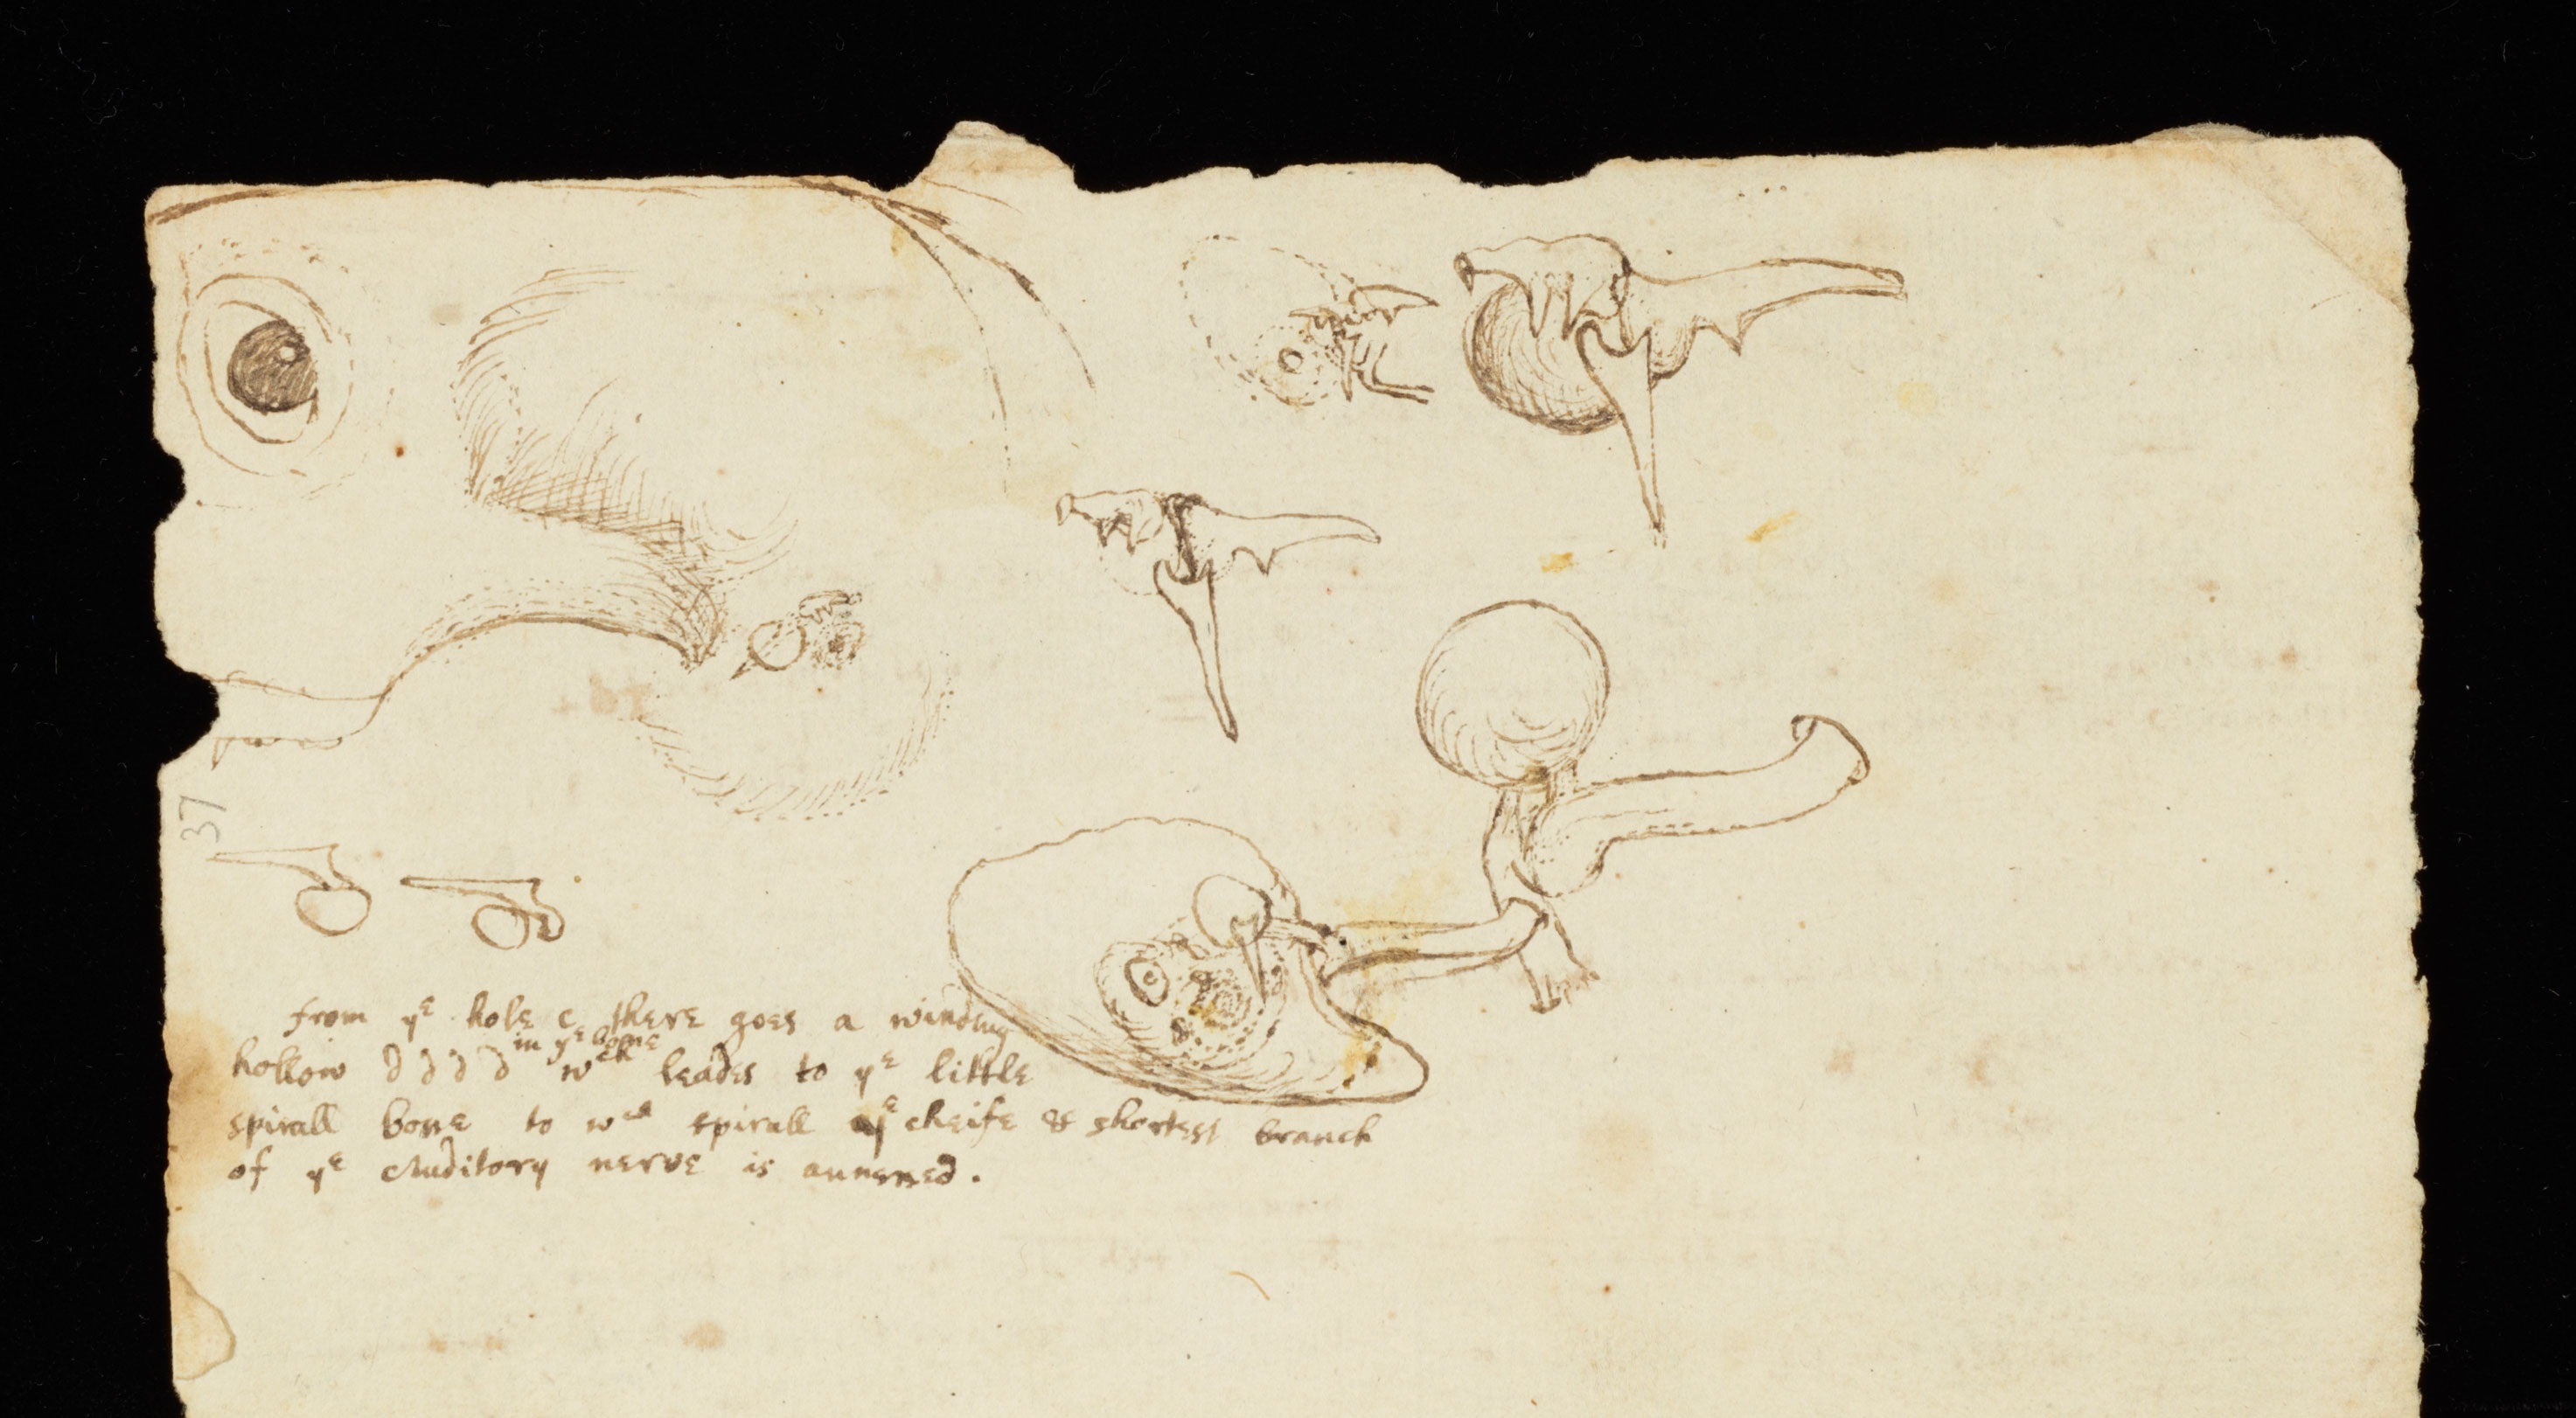 37
from yᵉ hole c there goes a winding
in yᵉ bone
hollow d d d d wᶜʰ leades to yᵉ little
spirall bone to wᶜʰ spirall yᵉ cheife & shortest branch
of yᵉ Auditory nerve is annexed.